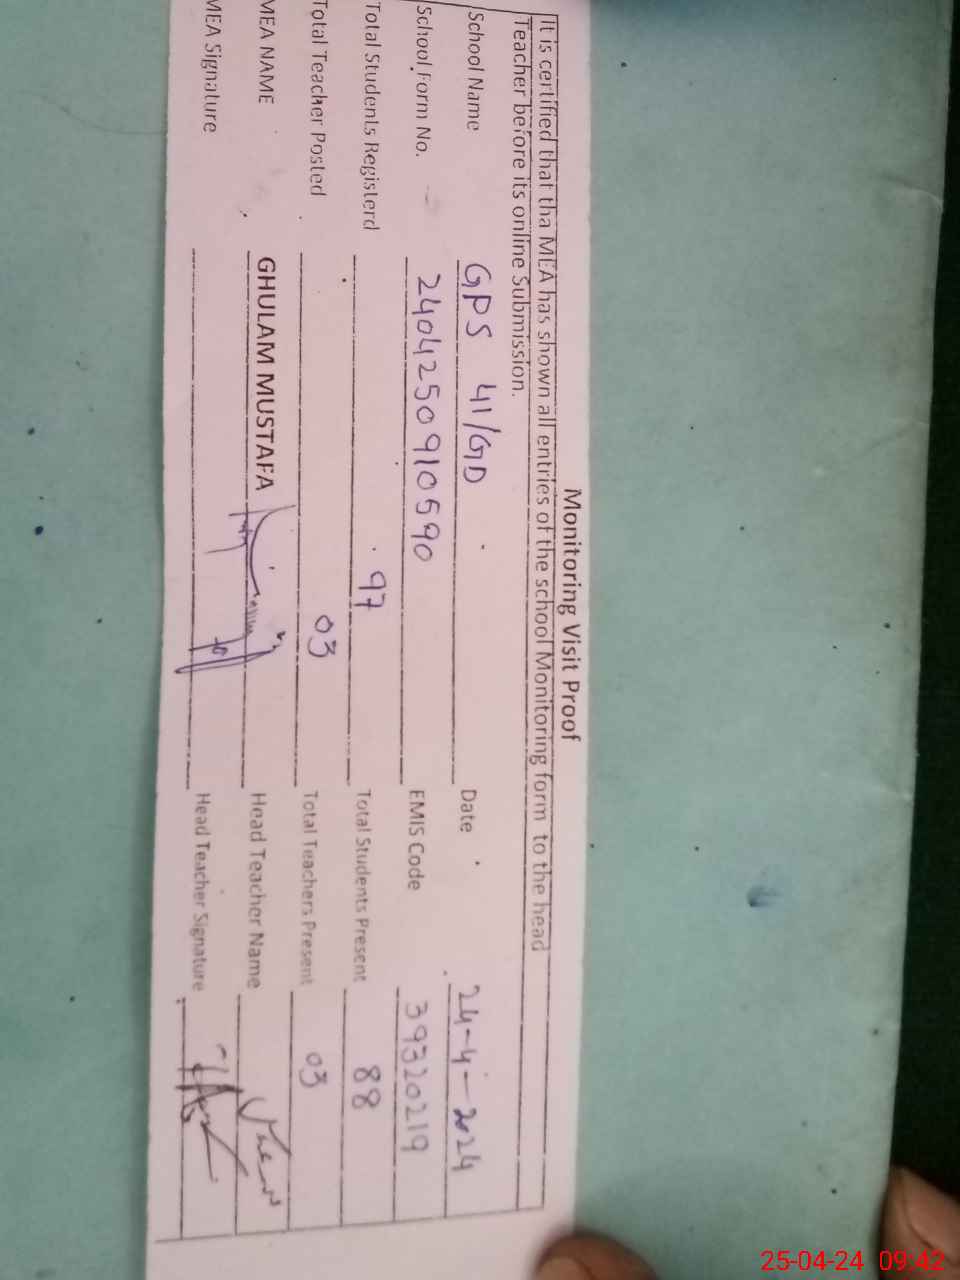 Monitoring Visit Proof
It is certified that tha MEA has shown all entries of the school Monitoring form to the head
Teacher before its online Submission.
School Name GPS 41/GD Date 24-4-2024
School Form No. 2404250910590 EMIS Code 39320219
Total Students Registerd 97 Total Students Present 88
Total Teacher Posted 03 Total Teachers Present 03
MEA NAME GHULAM MUSTAFA Head Teacher Name
MEA Signature Head Teacher Signature
25-04-24 09:42